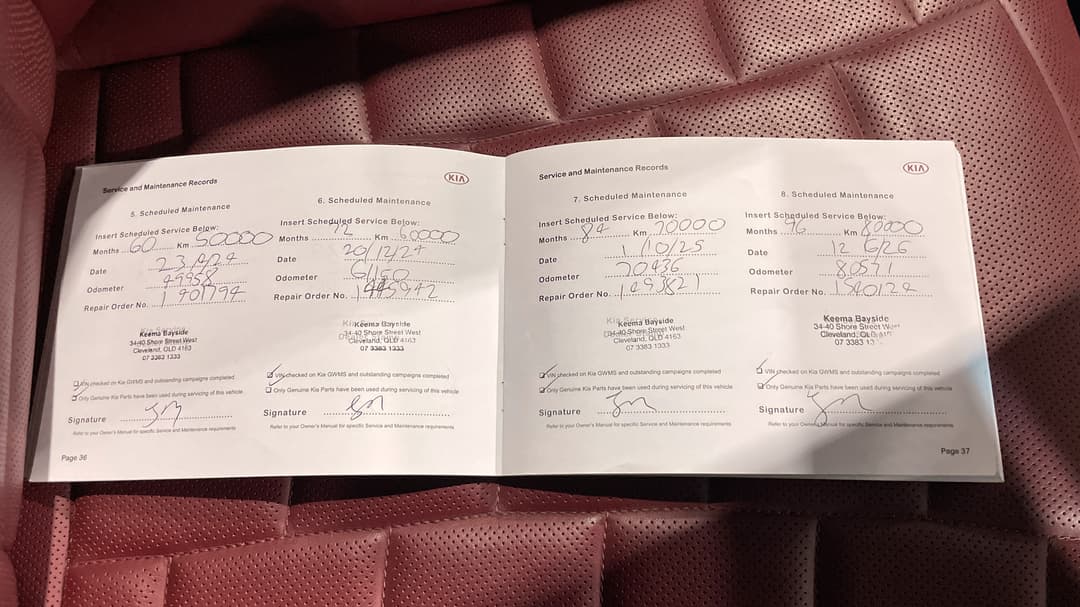 Service and Maintenance Records
KIA
5. Scheduled Maintenance
Insert Scheduled Service Below:
Months 60 Km 50000
Date
Odometer 49958
Repair Order No. 1401794
Keema Bayside
34-40 Shore Street West
Cleveland, QLD 4163
07 3383 1333
VIN checked on Kia GWMS and outstanding campaigns completed
Only Genuine Kia Parts have been used during servicing of this vehicle
Signature
Refer to your Owner's Manual for specific Service and Maintenance requirements
Page 36
6. Scheduled Maintenance
Insert Scheduled Service Below:
Months 72 Km 60000
Date 20/12/24
Odometer 61150
Repair Order No.
Keema Bayside
34-40 Shore Street West
Cleveland, QLD 4163
07 3383 1333
VIN checked on Kia GWMS and outstanding campaigns completed
Only Genuine Kia Parts have been used during servicing of this vehicle
Signature
Refer to your Owner's Manual for specific Service and Maintenance requirements
Service and Maintenance Records
KIA
7. Scheduled Maintenance
Insert Scheduled Service Below:
Months 84 Km 70000
Date 1/10/25
Odometer 70436
Repair Order No. 1493821
Keema Bayside
34-40 Shore Street West
Cleveland, QLD 4163
07 3383 1333
VIN checked on Kia GWMS and outstanding campaigns completed
Only Genuine Kia Parts have been used during servicing of this vehicle
Signature
Refer to your Owner's Manual for specific Service and Maintenance requirements
8. Scheduled Maintenance
Insert Scheduled Service Below:
Months 96 Km 80000
Date 12 6/26
Odometer 80571
Repair Order No. 1540124
Keema Bayside
34-40 Shore Street West
Cleveland,
07 3383
VIN checked on Kia GWMS and outstanding campaigns completed
Only Genuine Kia Parts have been used during servicing of this vehicle
Signature
Refer to your Owner's Manual for specific Service and Maintenance requirements
Page 37